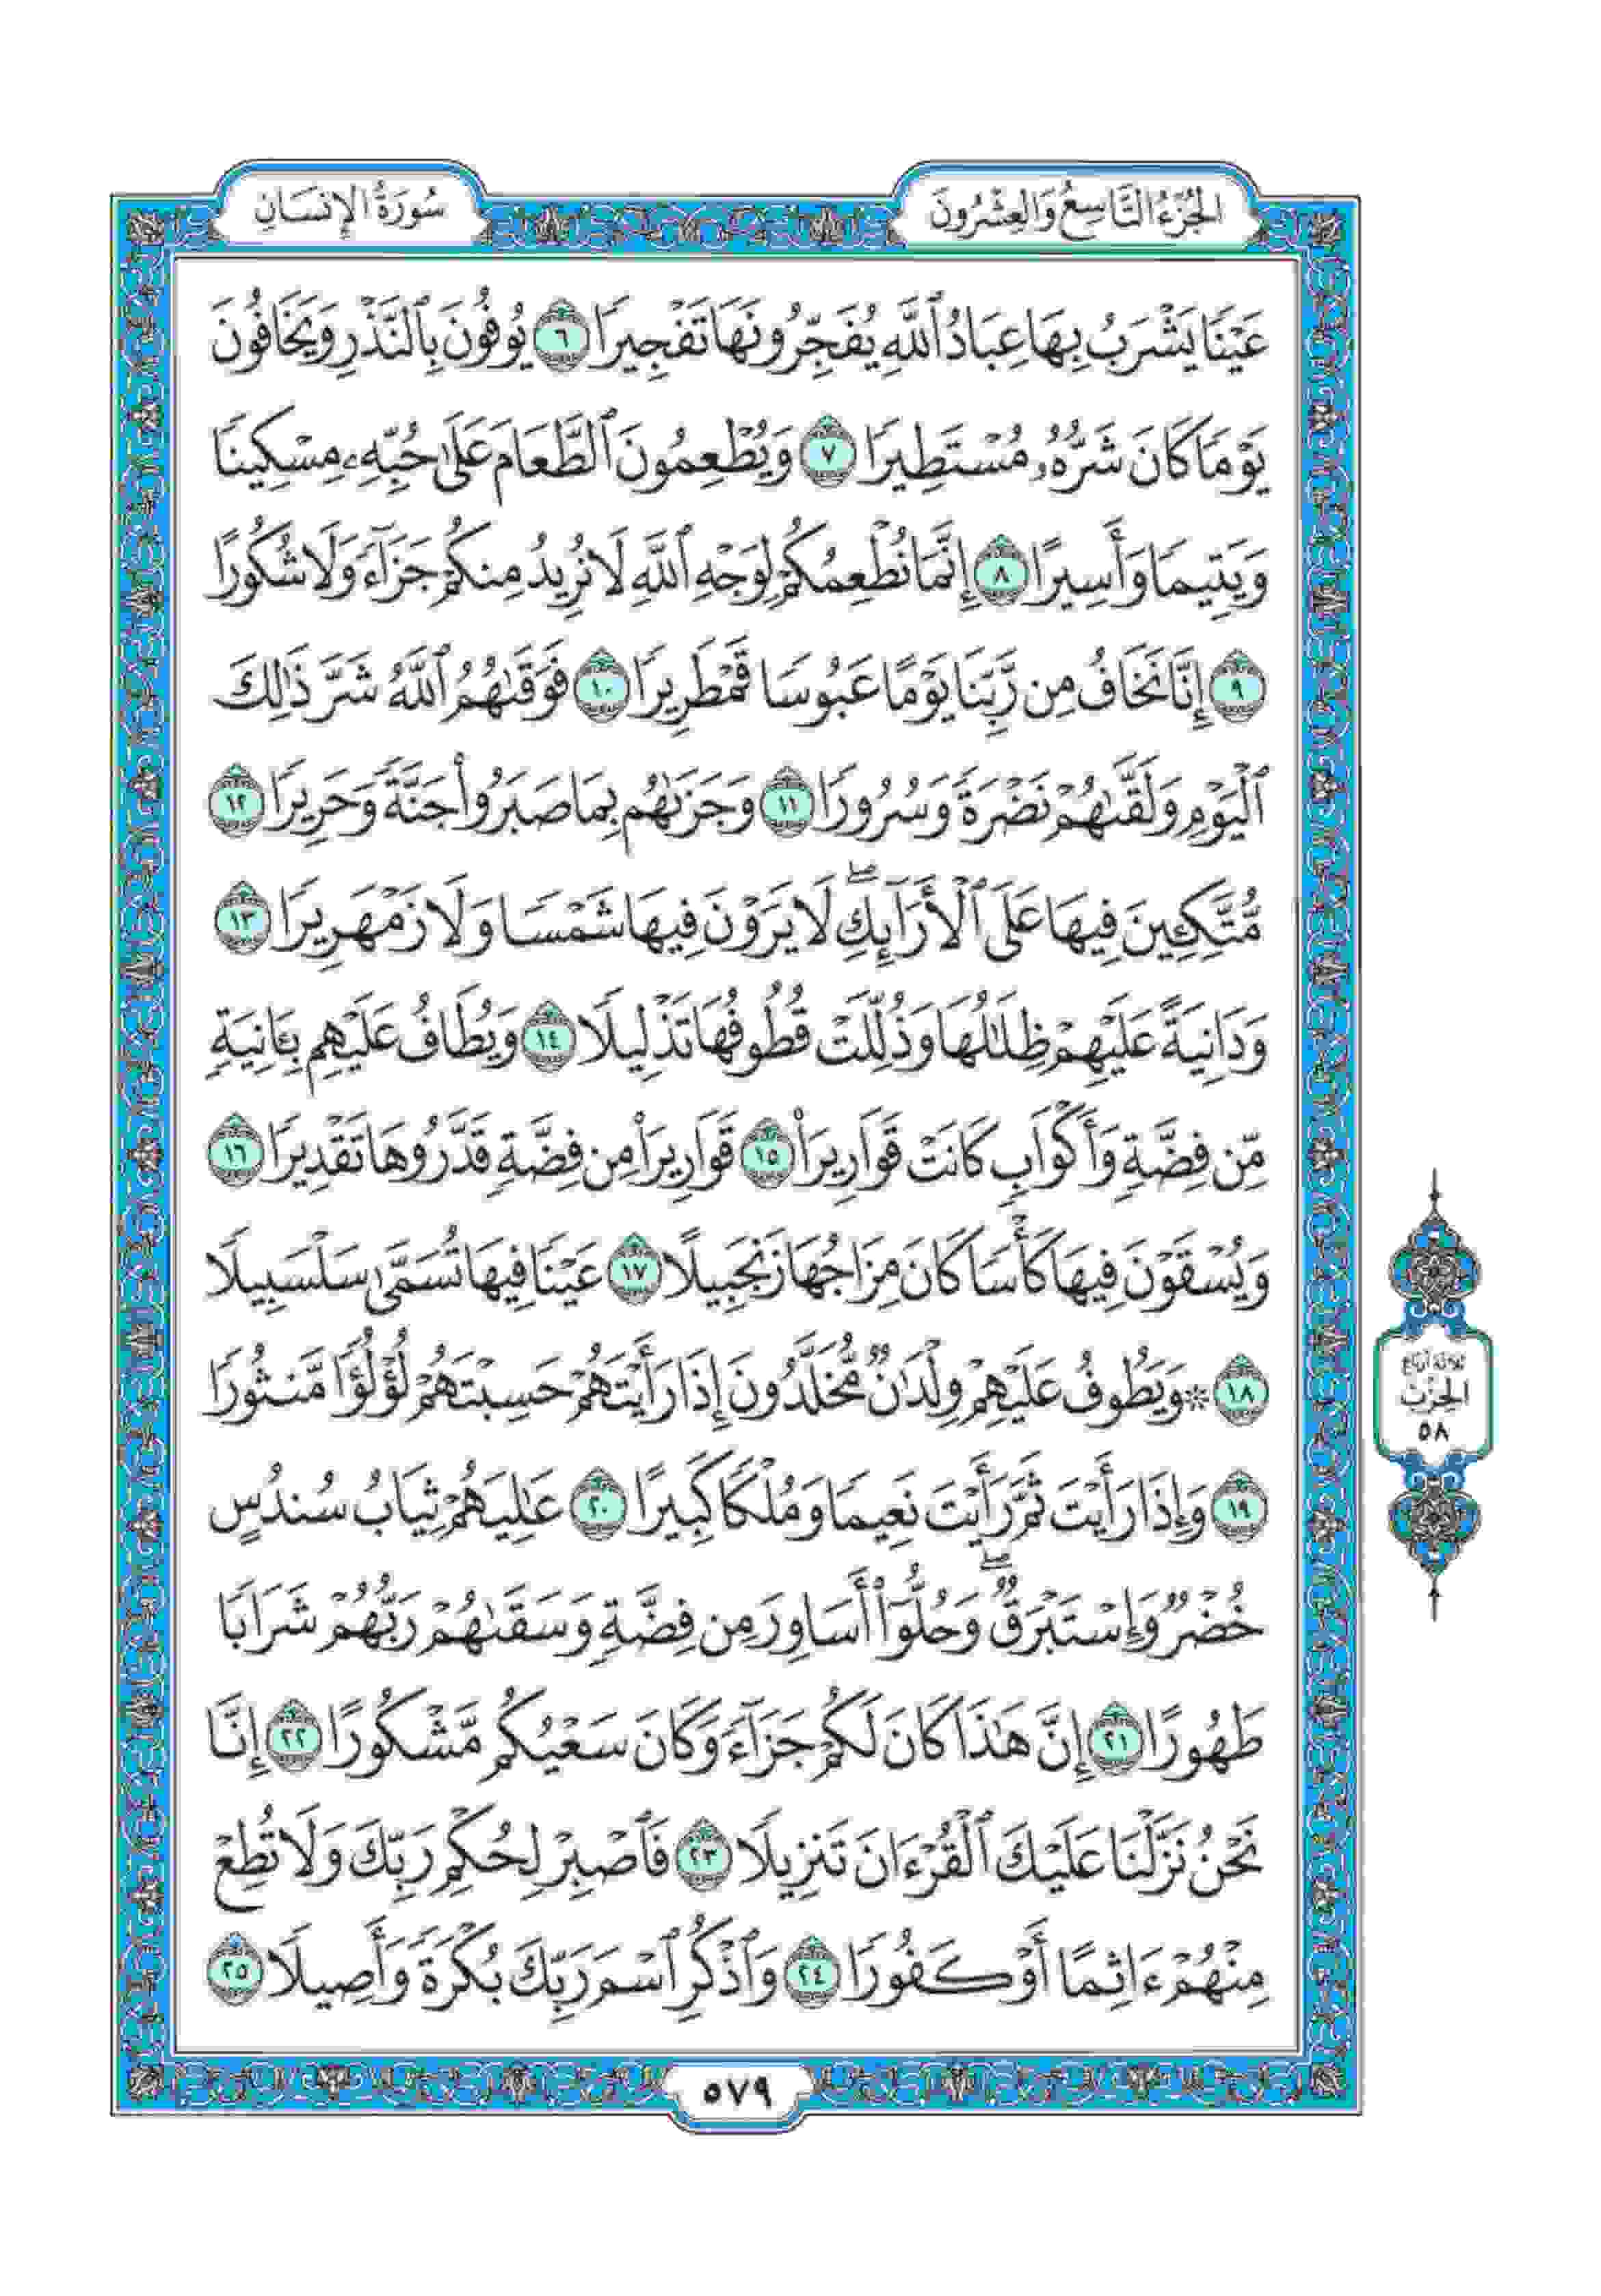 الجُزْءُ التَّاسِعُ وَالعِشْرُونَ
سُورَةُ الإِنسَانِ
عَيْنٗا يَشْرَبُ بِهَا عِبَادُ ٱللَّهِ يُفَجِّرُونَهَا تَفْجِيرٗا ٦ يُوفُونَ بِٱلنَّذْرِ وَيَخَافُونَ
يَوْمٗا كَانَ شَرُّهُۥ مُسْتَطِيرٗا ٧ وَيُطْعِمُونَ ٱلطَّعَامَ عَلَىٰ حُبِّهِۦ مِسْكِينٗا
وَيَتِيمٗا وَأَسِيرًا ٨ إِنَّمَا نُطْعِمُكُمْ لِوَجْهِ ٱللَّهِ لَا نُرِيدُ مِنكُمْ جَزَآءٗ وَلَا شُكُورًا
٩ إِنَّا نَخَافُ مِن رَّبِّنَا يَوْمًا عَبُوسٗا قَمْطَرِيرٗا ١٠ فَوَقَىٰهُمُ ٱللَّهُ شَرَّ ذَٰلِكَ
ٱلْيَوْمِ وَلَقَّىٰهُمْ نَضْرَةٗ وَسُرُورٗا ١١ وَجَزَىٰهُم بِمَا صَبَرُواْ جَنَّةٗ وَحَرِيرٗا ١٢
مُّتَّكِـِٔينَ فِيهَا عَلَى ٱلْأَرَآئِكِۖ لَا يَرَوْنَ فِيهَا شَمْسٗا وَلَا زَمْهَرِيرٗا ١٣
وَدَانِيَةً عَلَيْهِمْ ظِلَٰلُهَا وَذُلِّلَتْ قُطُوفُهَا تَذْلِيلٗا ١٤ وَيُطَافُ عَلَيْهِم بِـَٔانِيَةٖ
مِّن فِضَّةٖ وَأَكْوَابٖ كَانَتْ قَوَارِيرَا۠ ١٥ قَوَارِيرَاْ مِن فِضَّةٖ قَدَّرُوهَا تَقْدِيرٗا ١٦
وَيُسْقَوْنَ فِيهَا كَأْسٗا كَانَ مِزَاجُهَا زَنجَبِيلًا ١٧ عَيْنٗا فِيهَا تُسَمَّىٰ سَلْسَبِيلٗا
١٨ ۞ وَيَطُوفُ عَلَيْهِمْ وِلْدَٰنٞ مُّخَلَّدُونَ إِذَا رَأَيْتَهُمْ حَسِبْتَهُمْ لُؤْلُؤٗا مَّنثُورٗا
١٩ وَإِذَا رَأَيْتَ ثَمَّ رَأَيْتَ نَعِيمٗا وَمُلْكٗا كَبِيرًا ٢٠ عَٰلِيَهُمْ ثِيَابُ سُندُسٍ
خُضْرٞ وَإِسْتَبْرَقٞۖ وَحُلُّوٓاْ أَسَاوِرَ مِن فِضَّةٖ وَسَقَىٰهُمْ رَبُّهُمْ شَرَابٗا
طَهُورًا ٢١ إِنَّ هَٰذَا كَانَ لَكُمْ جَزَآءٗ وَكَانَ سَعْيُكُم مَّشْكُورًا ٢٢ إِنَّا
نَحْنُ نَزَّلْنَا عَلَيْكَ ٱلْقُرْءَانَ تَنزِيلٗا ٢٣ فَٱصْبِرْ لِحُكْمِ رَبِّكَ وَلَا تُطِعْ
مِنْهُمْ ءَاثِمًا أَوْ كَفُورٗا ٢٤ وَٱذْكُرِ ٱسْمَ رَبِّكَ بُكْرَةٗ وَأَصِيلٗا ٢٥
ثلاثة أرباع
الحِزْب
٥٨
٥٧٩